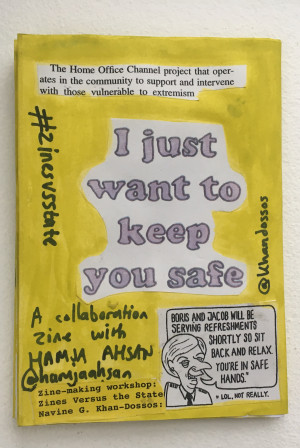 The Home Office Channel project that oper-
ates in the community to support and intervene
with those vulnerable to extremism
#zinesvsstate
I just
want to
keep
you safe
@khandossos
A collaboration
zine with
HAMJA AHSAN
@hamjaahsan
zine-making workshop:
Zines Versus the State
Navine G. Khan-Dossos:
BORIS AND JACOB WILL BE
SERVING REFRESHMENTS
SHORTLY SO SIT
BACK AND RELAX.
YOU'RE IN SAFE
HANDS.*
* LOL, NOT REALLY.